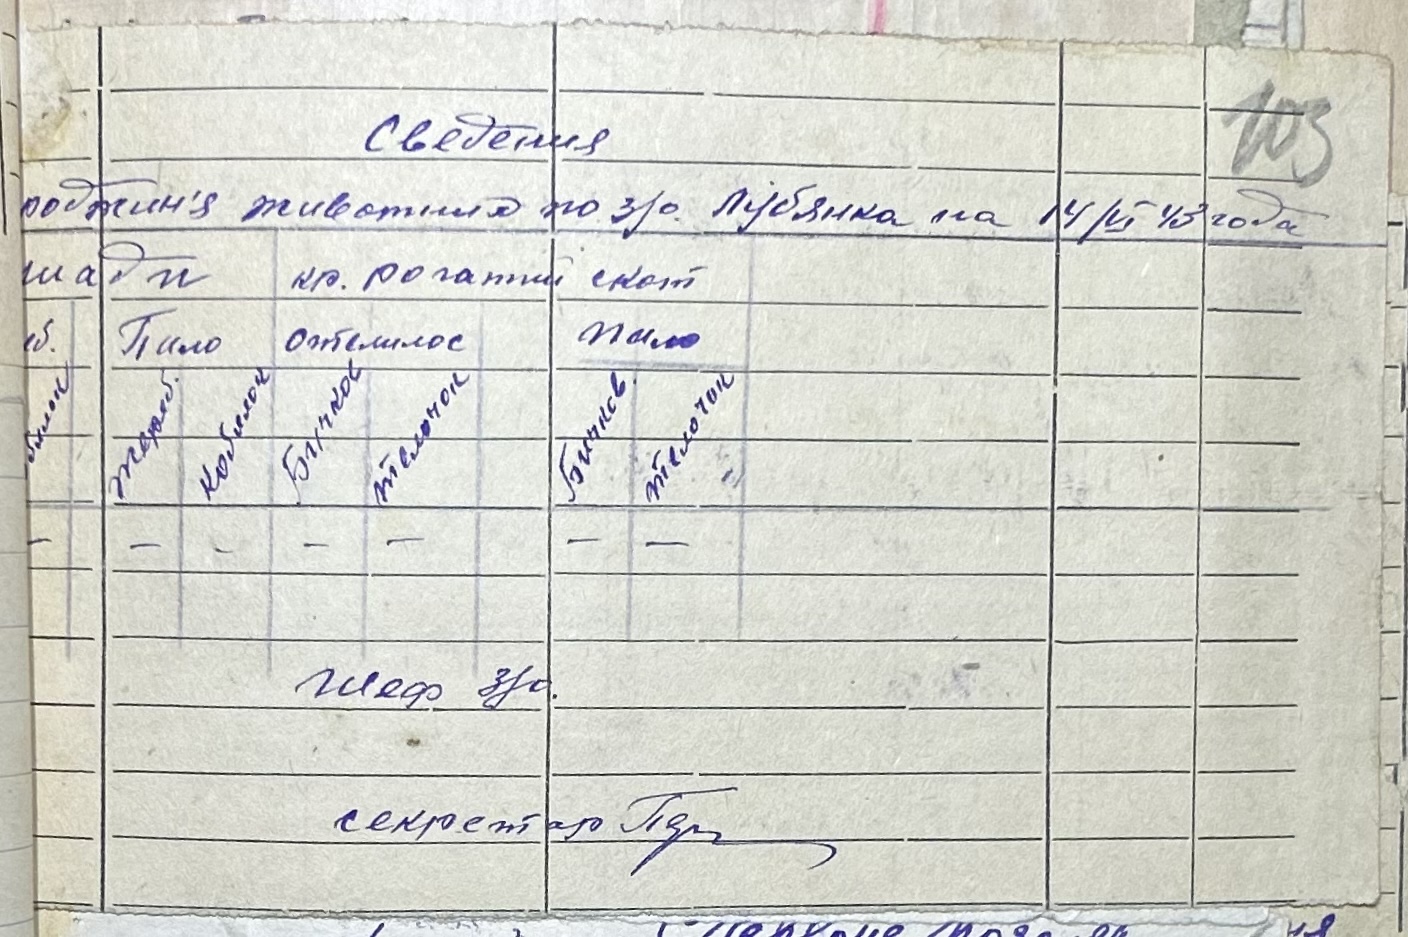 103
Сведения
роджин'я животния по з/о. Лубянка на 14/VI 43 года
шади кр. рогатий скот
еб. Пало отелилос пало
билок жереб. кобилок Бичков телочок Бичков. телочок
— — — — — — —
Шеф з/о.
секретар